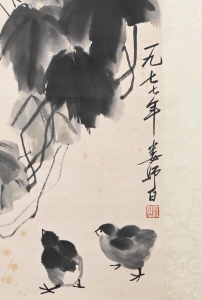 一九七七年
娄师白